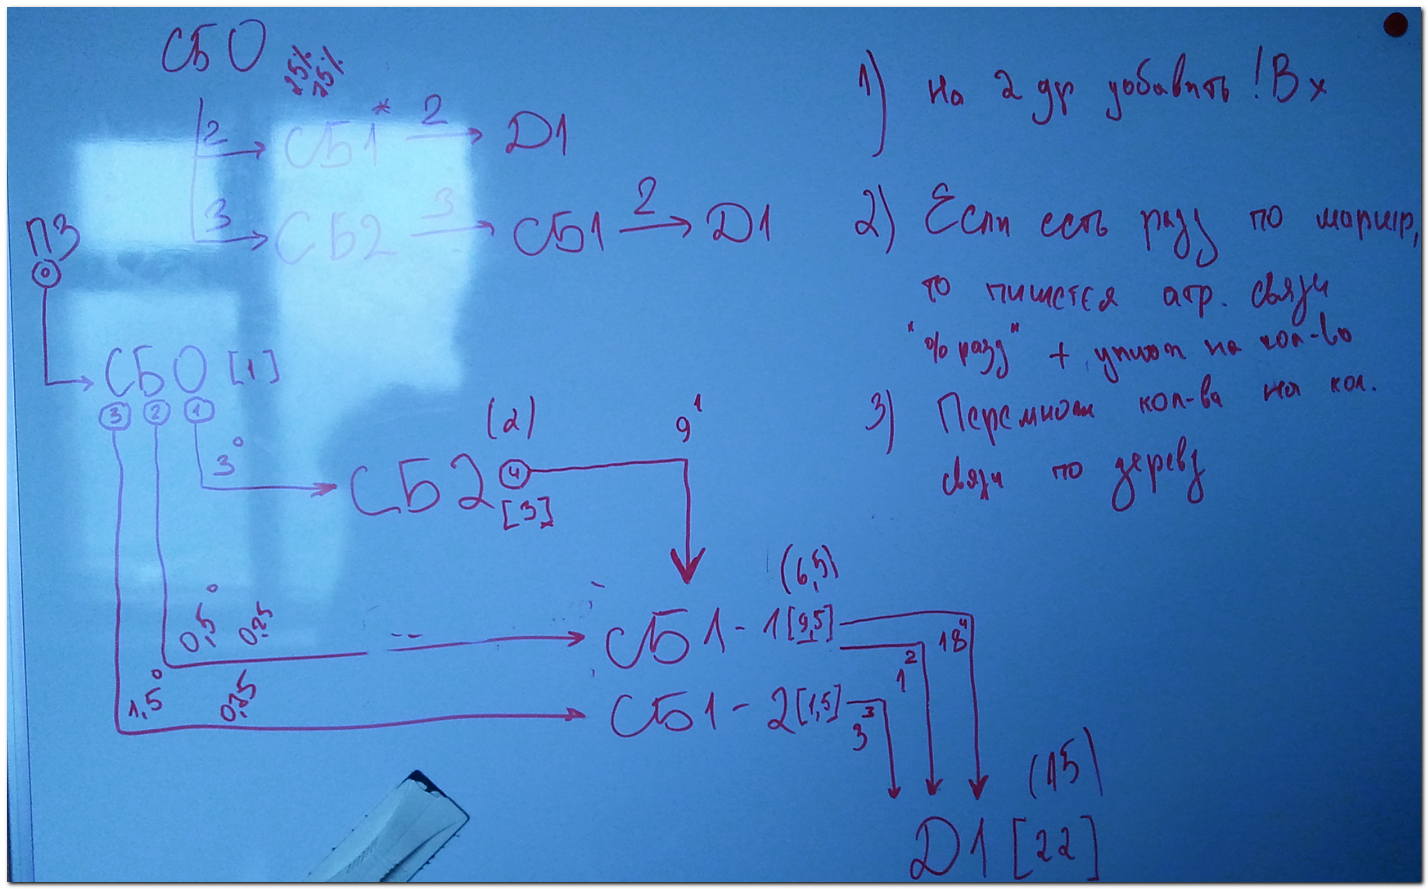 СБО
25%
75%
2 СБ1* 2 Д1
3 СБ2 3 СБ1 2 Д1
ПЗ
0
СБО [1]
3 2 1
3°
(2)
СБ2 4
[3]
9¹
0,5° 0,25
1,5° 0,75
(6,5)
СБ1-1 [9,5]
18⁴
1²
СБ1-2 [1,5]
3³
(15)
Д1 [22]
1) на 2 др добавить ! Вх
2) Если есть разд по маршр,
то пишется атр. связи
"% разд" + умнож на кол-во
3) Перемнож кол-ва на кол.
связи по дереву